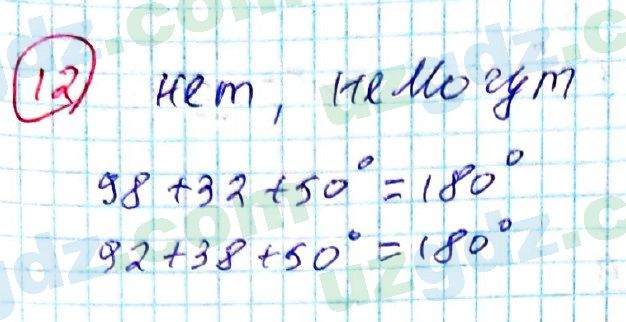 12 нет, не могут
98 + 32 + 50° = 180°
92 + 38 + 50° = 180°
uzgdz.com